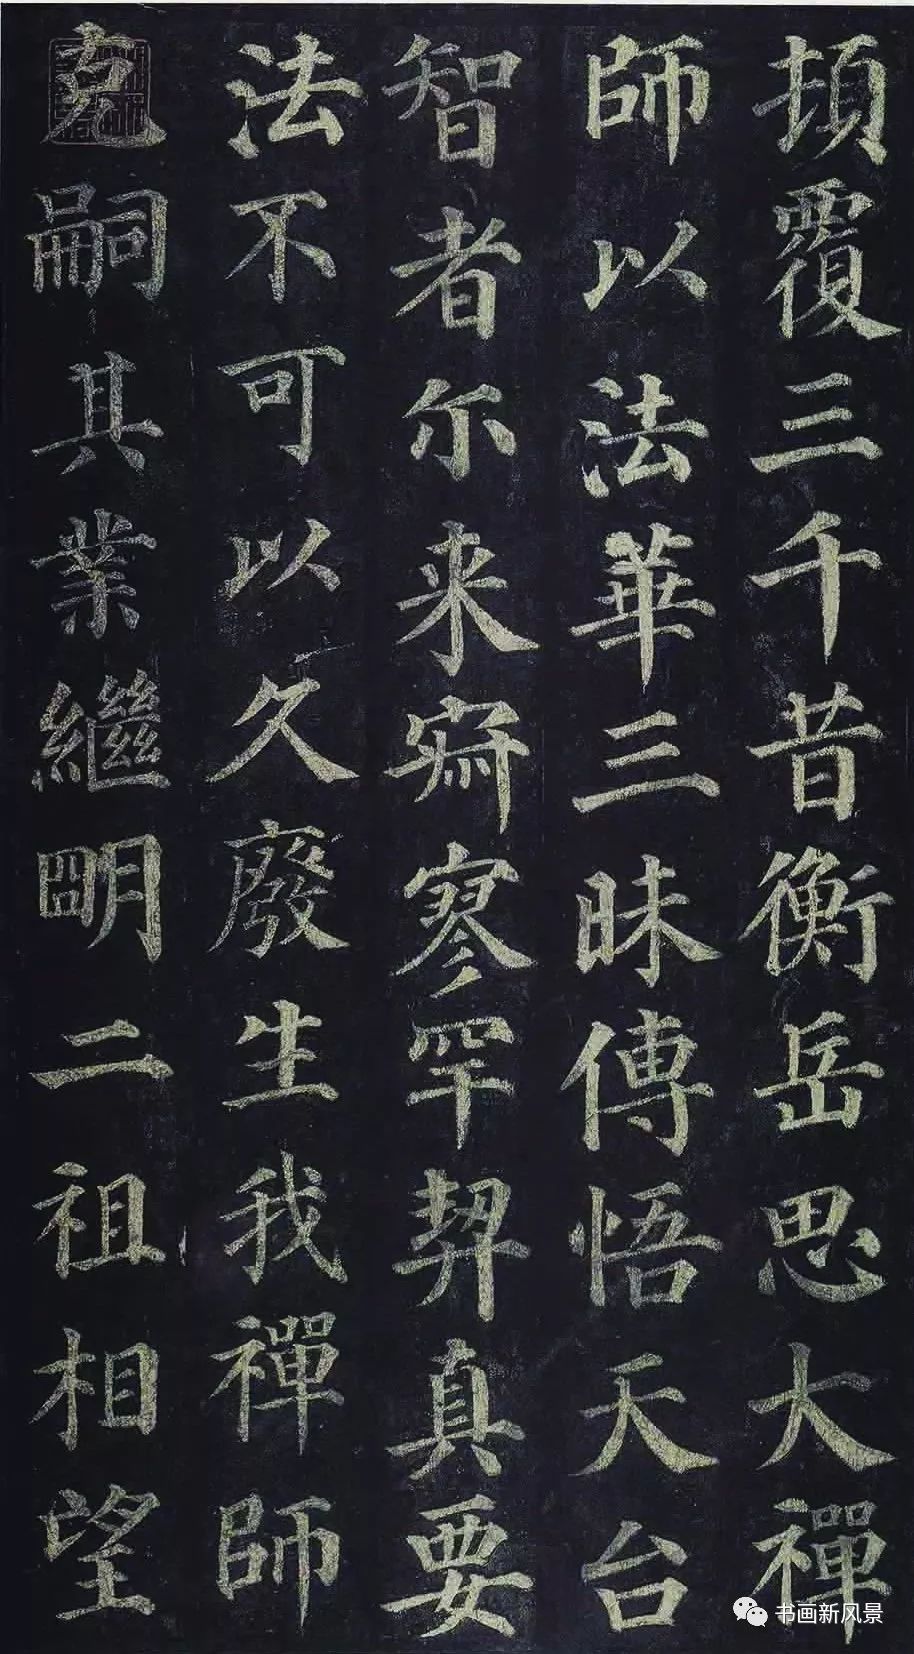 頂覆三千昔衡岳思大禪
師以法華三昧傳悟天台
智者尒来寂寥罕契真要
法不可以久廢生我禪師
克嗣其業繼明二祖相望
书画新风景